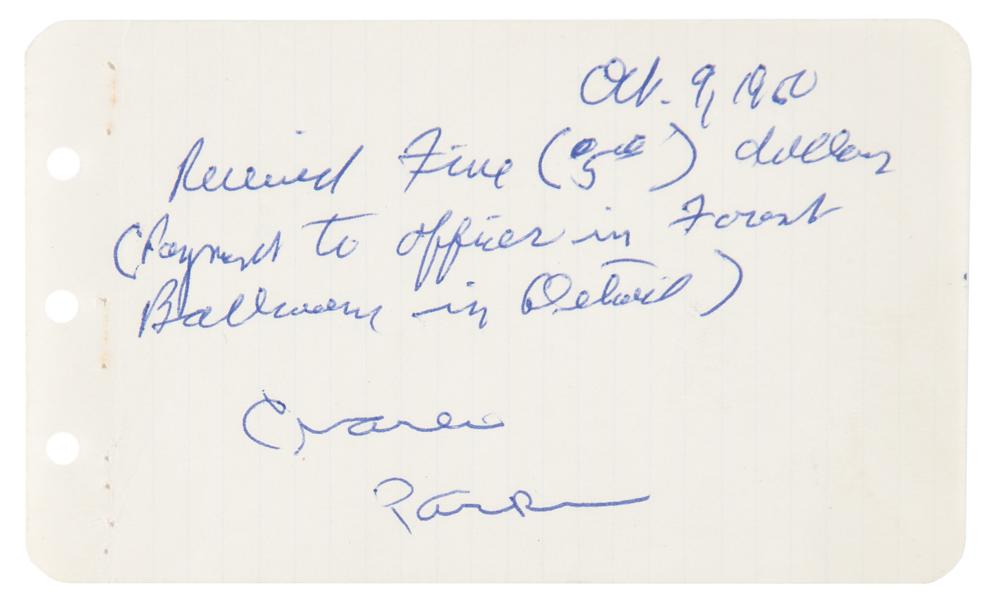 Oct. 9, 1950
Received Five (5 00) dollars
(Payment to officer in Forest
Ballroom in Detroit)
Charlie
Parker